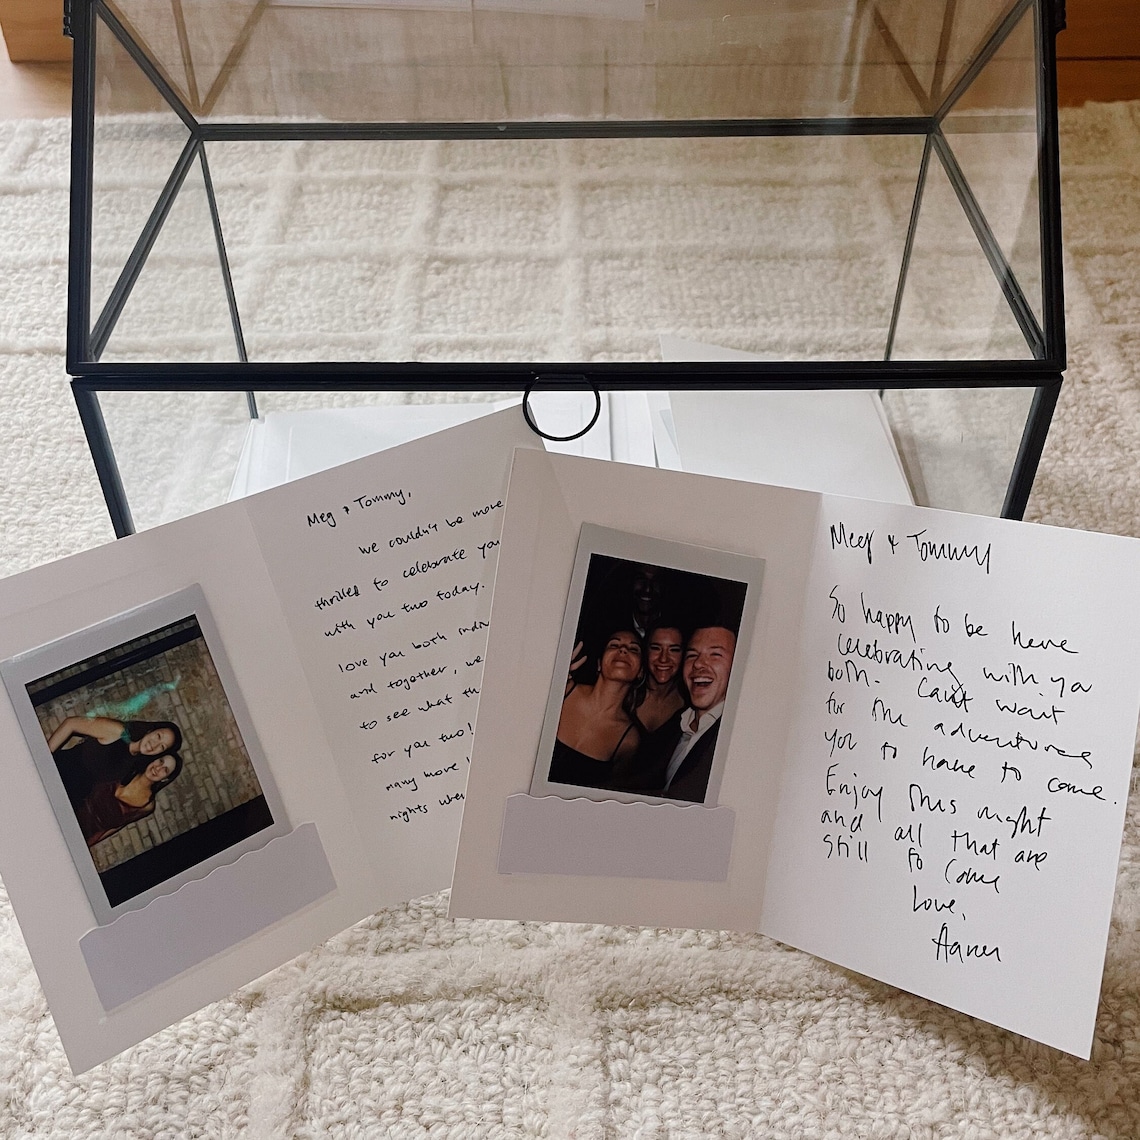 Meg & Tommy,
We couldn't be more
thrilled to celebrate you
with you two today.
love you both indiv
and together, we
to see what th
for you two!
many more
nights whe
Meg & Tommy
So happy to be here
celebrating with ya
both. Can't wait
for the adventures
you to have to come.
Enjoy this night
and all that are
still to come
Love,